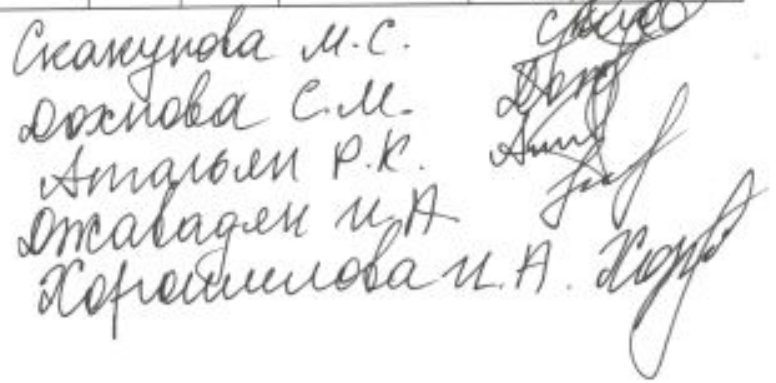 Скакунова М.С.
Дохнова С.М.
Атальян Р.К.
Джавадян И.А
Хорошилова И.А.